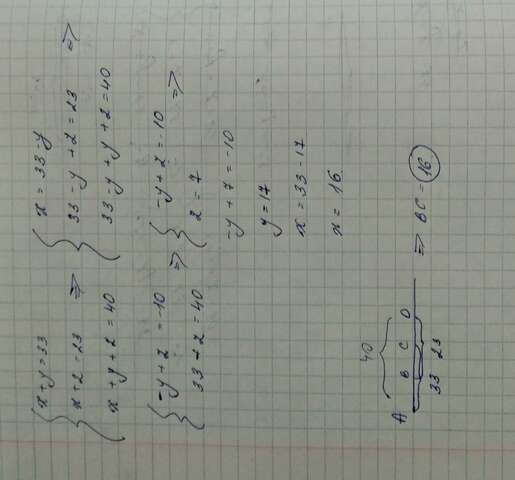 { x + y = 33
x + z = 23 =>
x + y + z = 40
{ x = 33 - y
33 - y + z = 23 =>
33 - y + y + z = 40
{ -y + z = -10 =>
33 + z = 40
{ -y + z = -10 =>
z = 7
-y + 7 = -10
y = 17
x = 33 - 17
x = 16.
40
A B C D => BC = 16
33 23